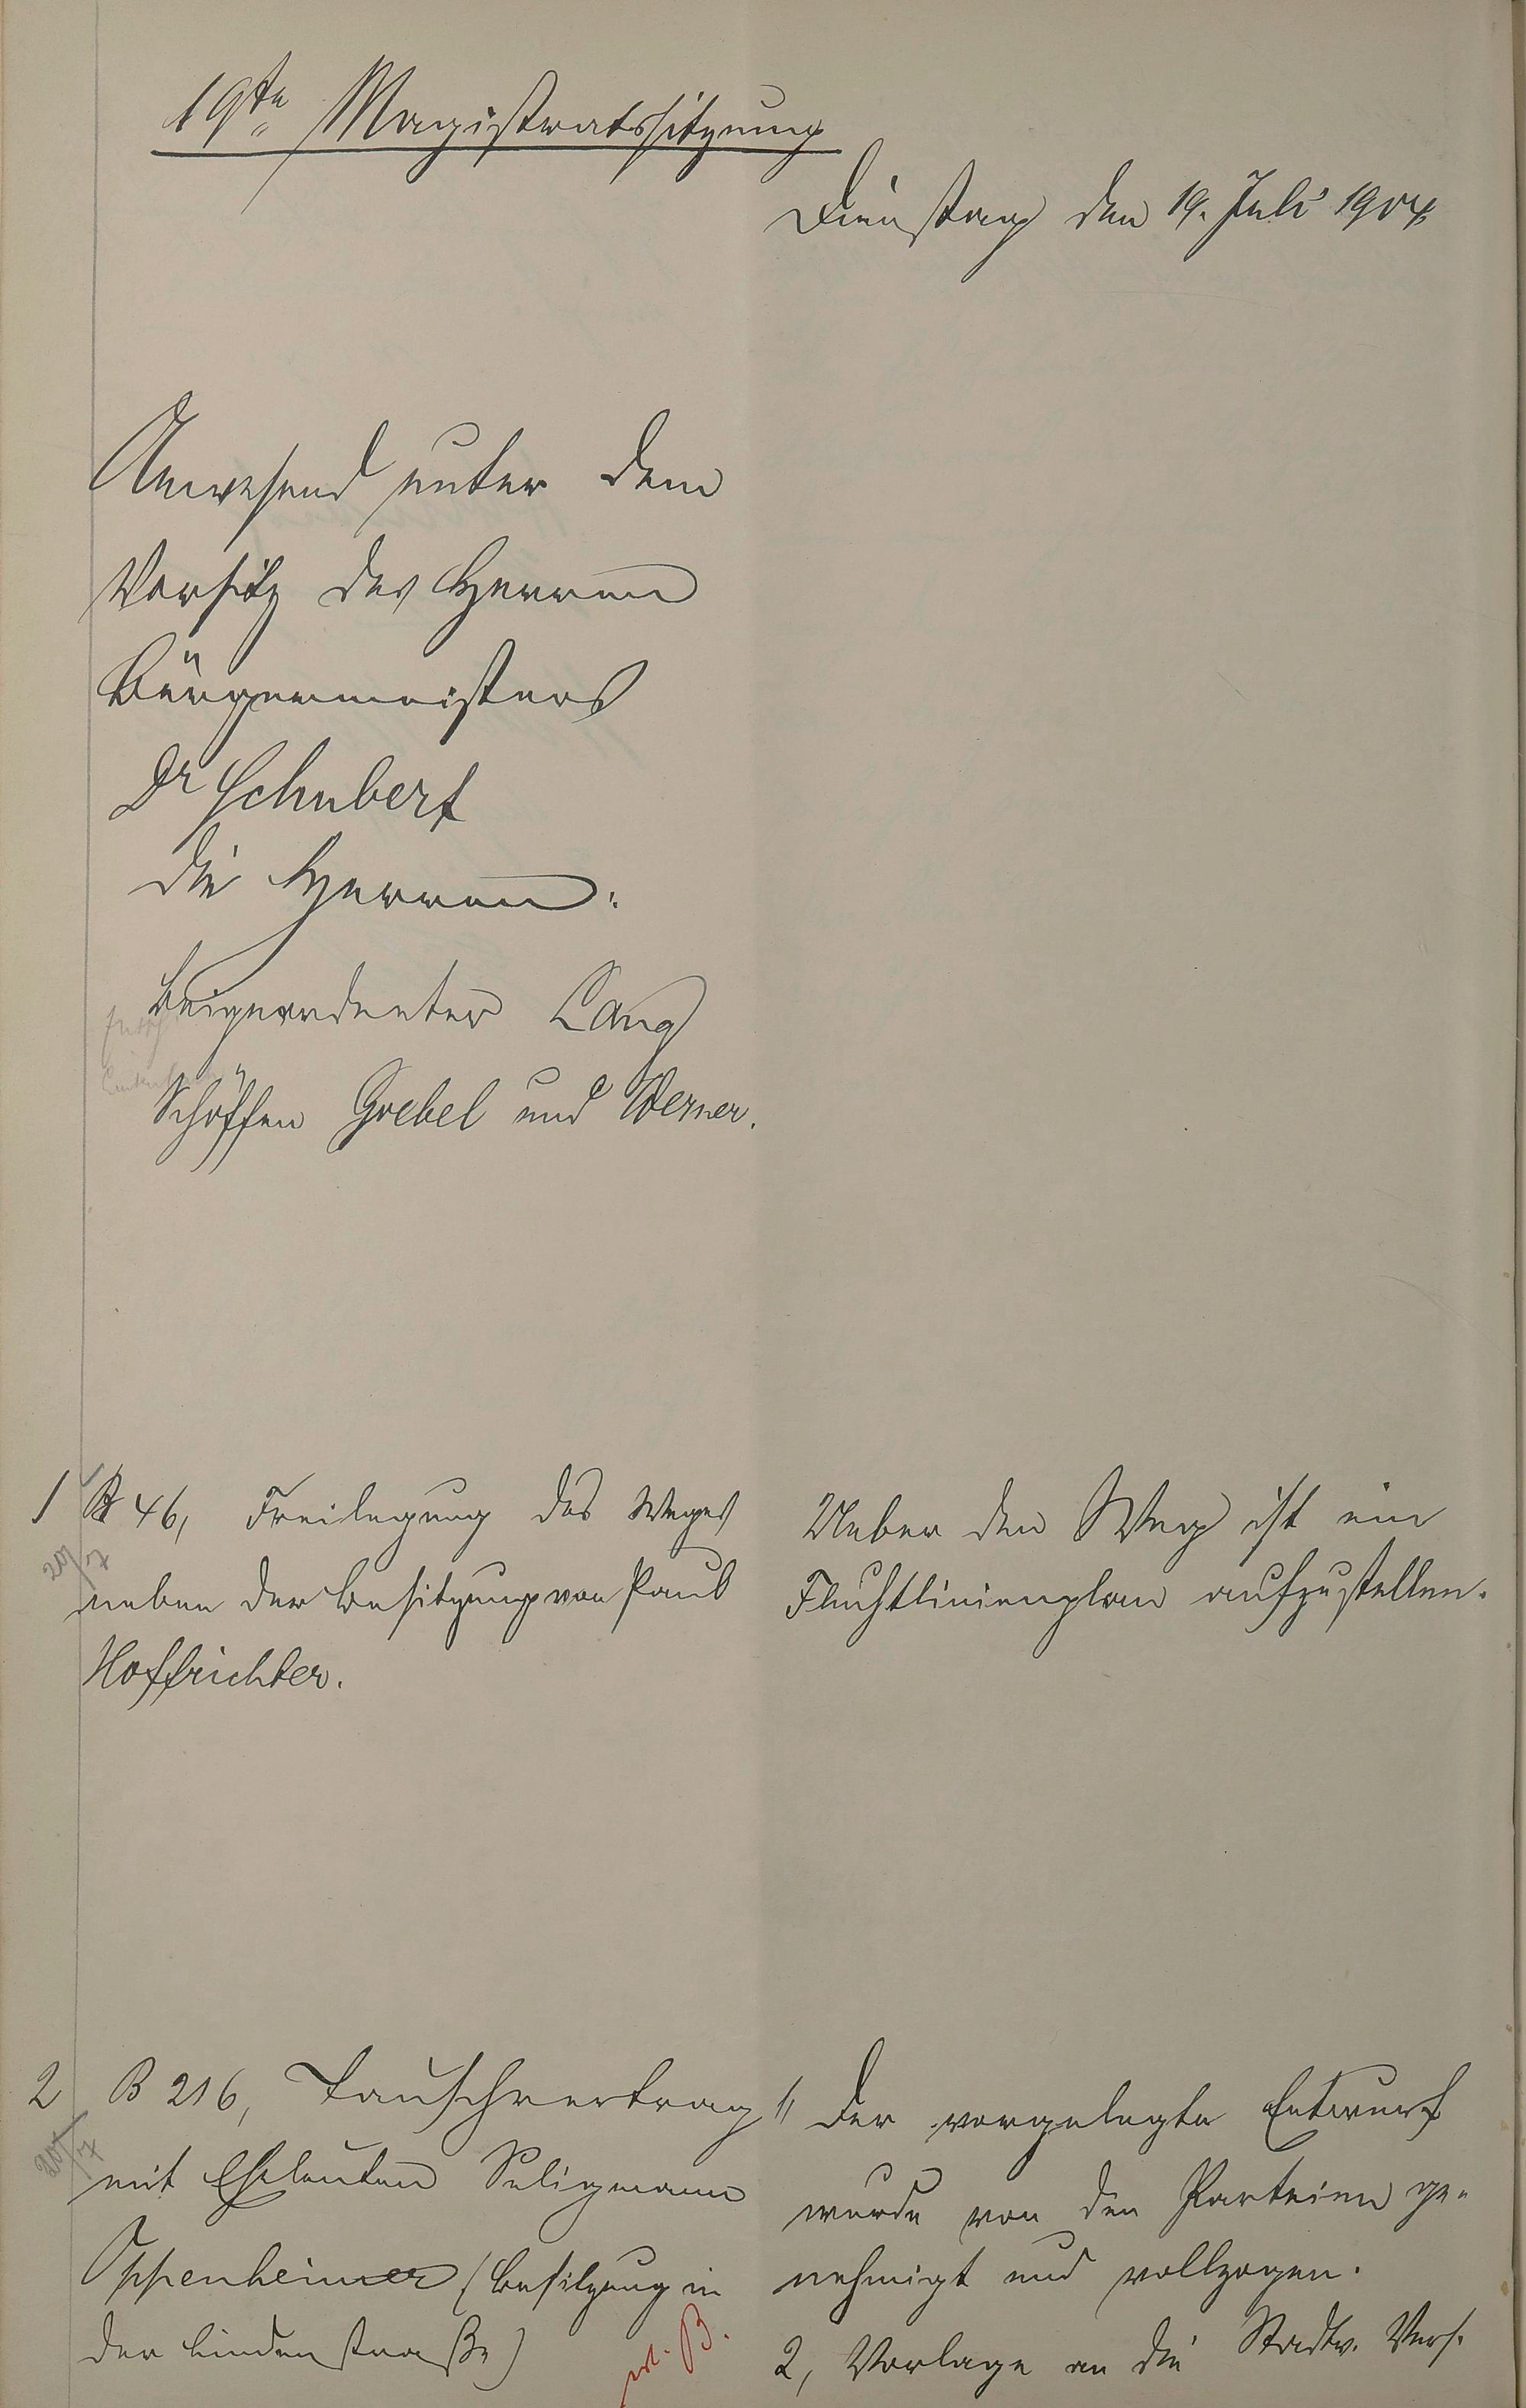 19te Magistratssitzung
Dienstag den 19. Juli 1904.
Anwesend unter dem
Vorsitz des Herrn
Bürgermeisters
Dr Schubert
die Herren:
Beigeordneter Lang
Schöffen Goebel und Werner.
1 B 46, Freilegung des Weges
20/7
neben der Besitzung von Paul
Hoffrichter.
Ueber den Weg ist ein
Fluchtlinienplan aufzustellen.
2 B 216, Tauschvertrag
20/7
mit Eheleuten Seligmann
Oppenheimer (Besitzung in
der Lindenstraße)
1, Der vorgelegte Entwurf
wurde von den Parteien ge-
nehmigt und vollzogen.
2, Vorlage an die Stadtv. Vers.